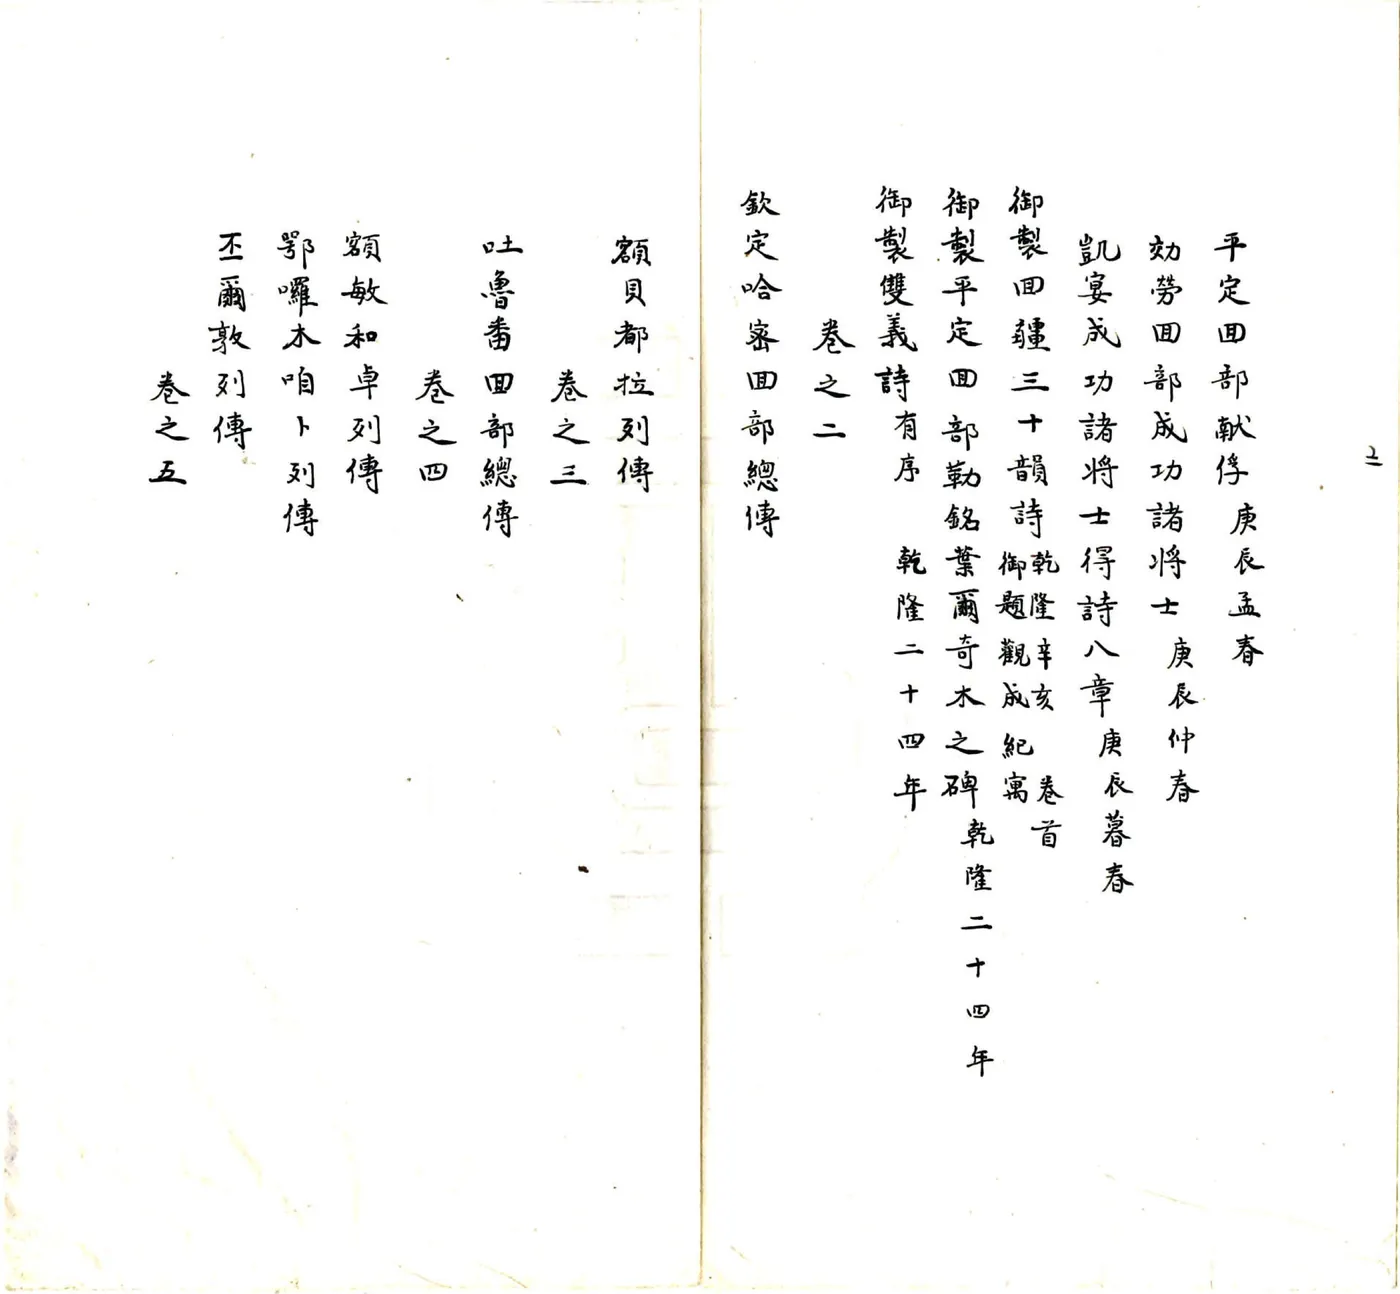 平定回部献俘庚辰孟春
効勞回部成功諸將士庚辰仲春
凱宴成功諸將士得詩八章庚辰暮春
御製回疆三十韻詩乾隆辛亥御題觀成紀寓卷首
御製平定回部勒銘葉爾奇木之碑乾隆二十四年
御製雙義詩有序乾隆二十四年
卷之二
欽定哈密回部總傳
額貝都拉列傳
卷之三
吐魯番回部總傳
卷之四
額敏和卓列傳
鄂囉木咱卜列傳
丕爾敦列傳
卷之五